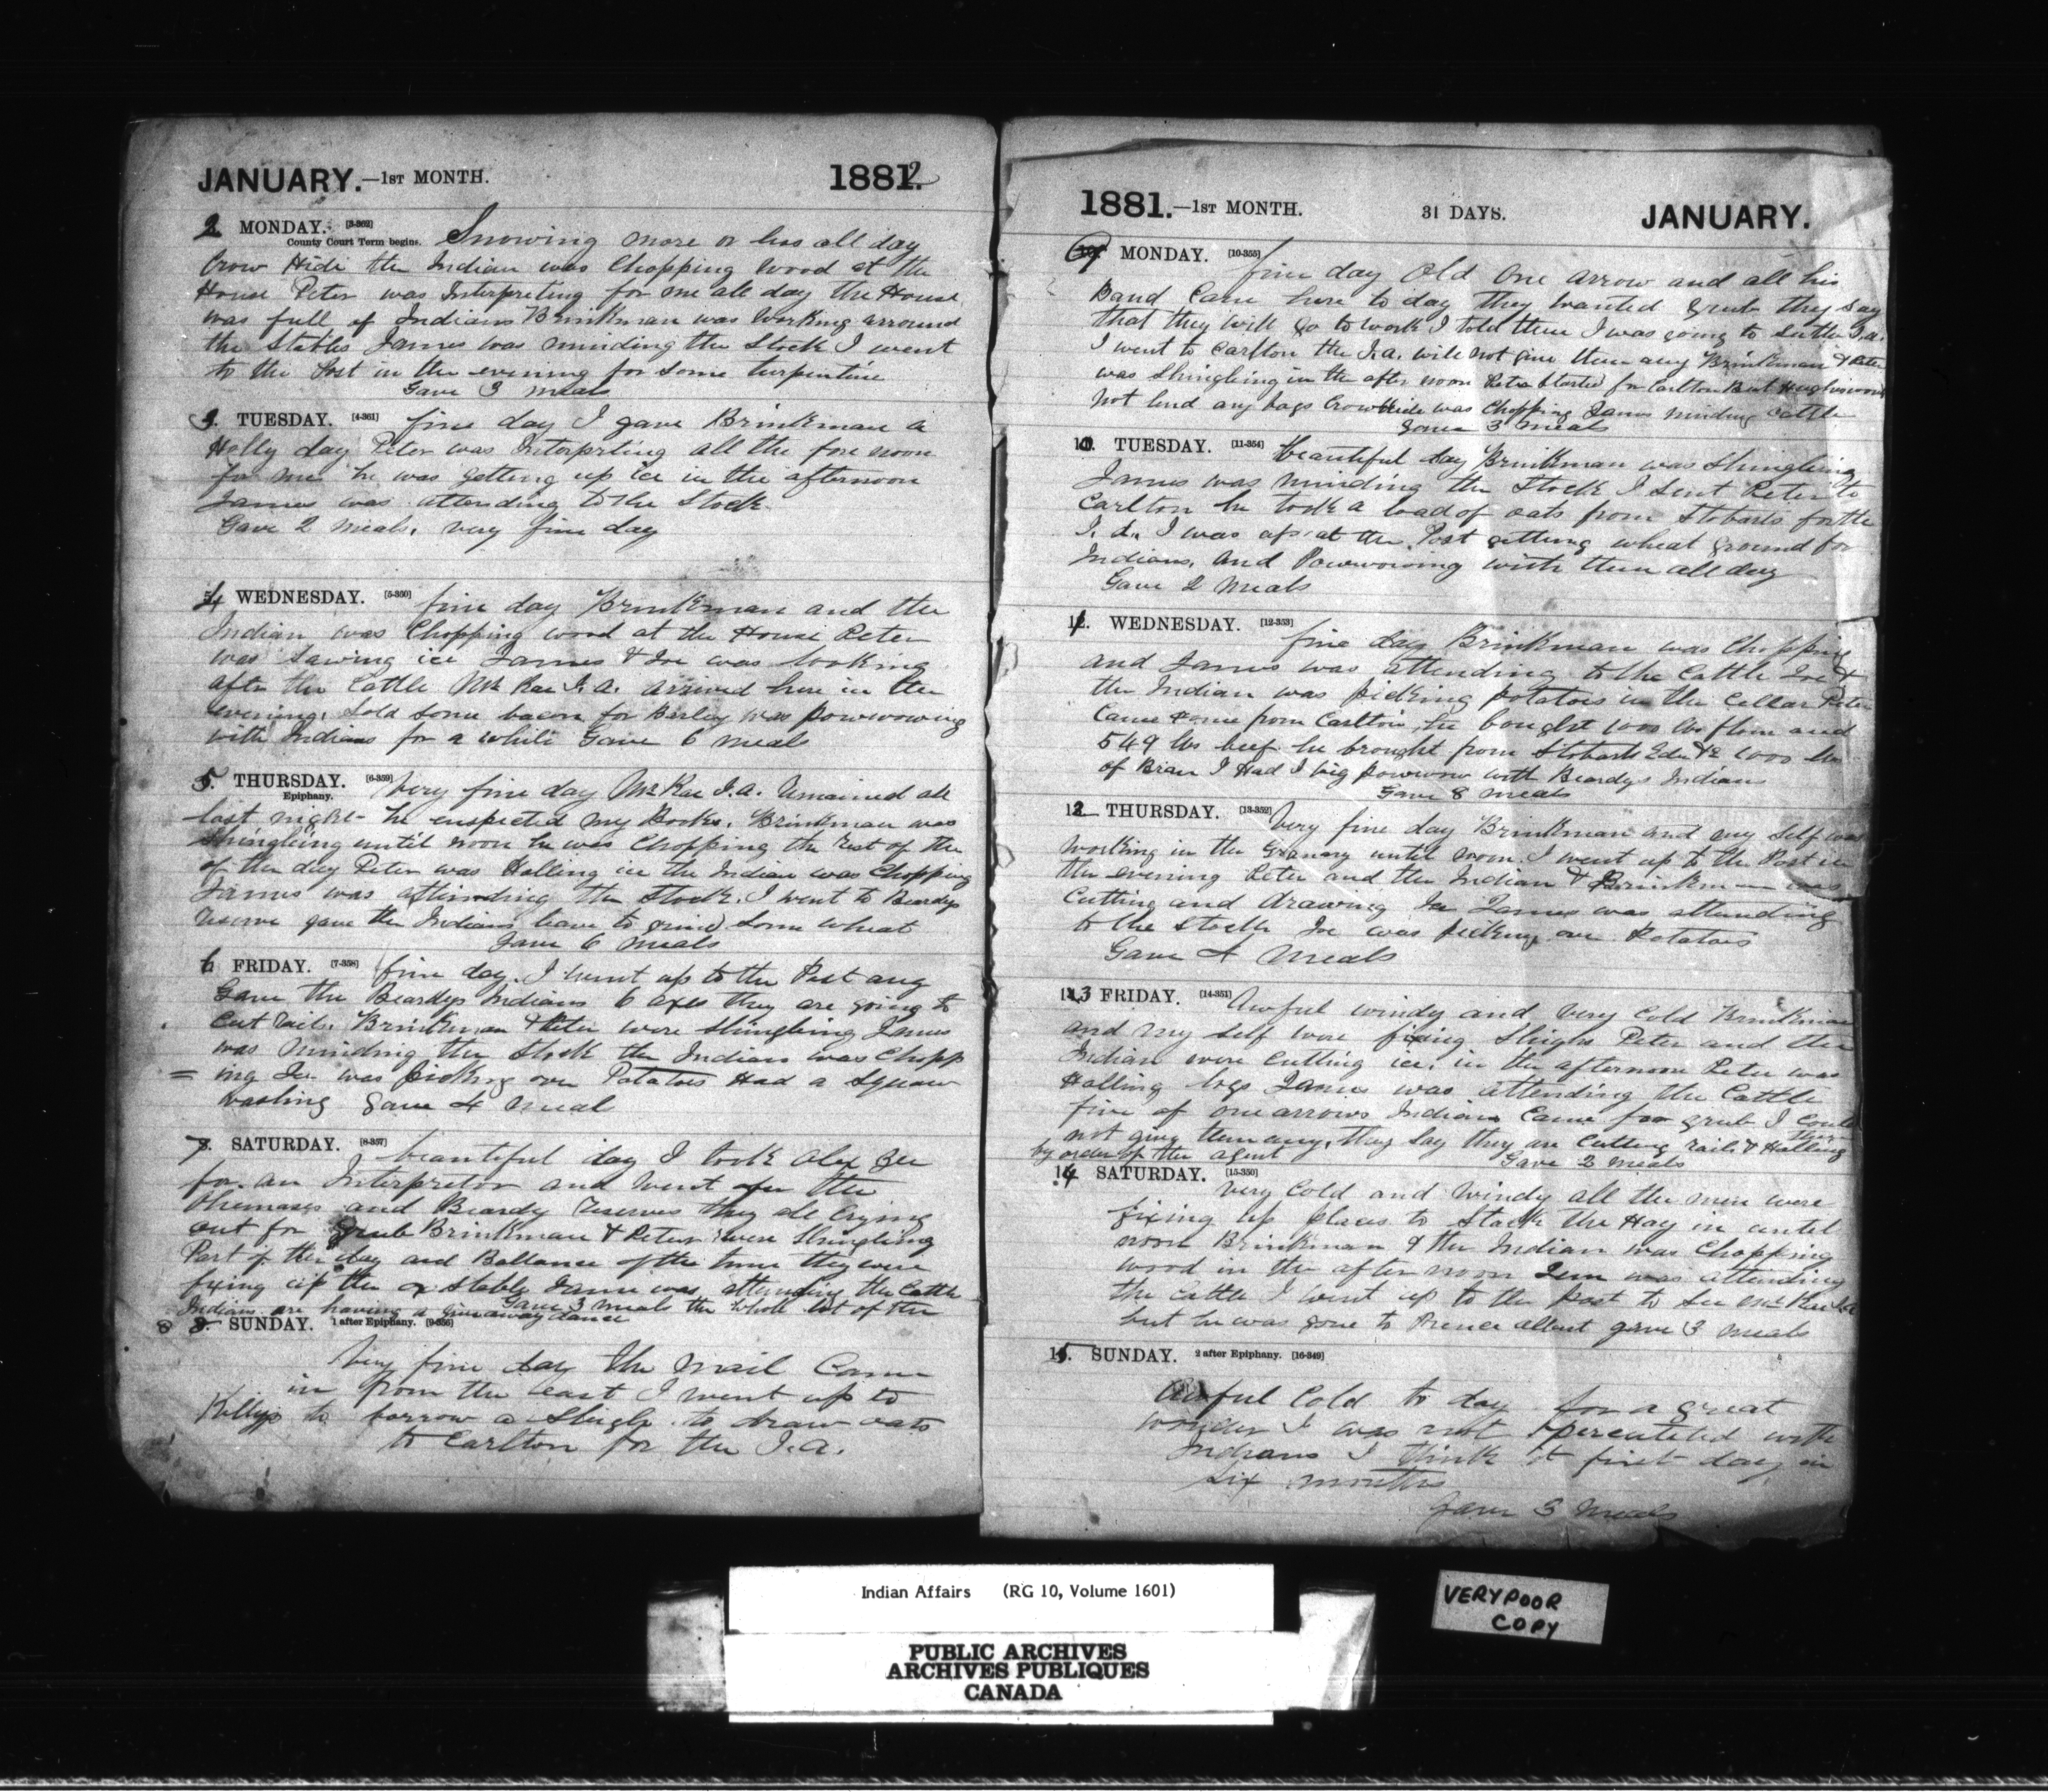 JANUARY.—1ST MONTH. 1882
2 MONDAY. [3-362] Snowing more or less all day
County Court Term begins.
Crow Hide the Indian was Chopping wood at the
House Peter was Interpreting for me all day the House
was full of Indians Brinkman was working arround
the Stables James was minding the Stock I went
to the Post in the evening for some turpentine
Gave 3 meals
3. TUESDAY. [4-361] fine day I gave Brinkman a
Holly day Peter was Interprting all the fore noon
for me he was getting up ice in the afternoon
James was attending to the Stock
Gave 2 meals, very fine day
4 WEDNESDAY. [5-360] fine day Brinkman and the
Indian was Chopping wood at the House Peter
was sawing ice James & Joe was looking
after the Cattle Mc Rae I.A. arrived here in the
evening, Sold some bacon for Barley was powwowing
with Indians for a while Gave 6 meals
5. THURSDAY. [6-359] Very fine day Mc Rae I.A. remained all
Epiphany.
last night he enspected my Books. Brinkman was
Shingleing until noon he was Chopping the rest of the
of the day Peter was Halling ice the Indian was Chopping
James was attending the Stock. I went to Beardys
reserve gave the Indians leave to grind some wheat
Gave 6 meals
6 FRIDAY. [7-358] fine day. I went up to the Post ang
Gave the Beardys Indians 6 axes they are going to
Cut rails. Brinkman & Peter were Shingleing James
was minding the Stock the Indian was Chopp
= ing Joe was picking over Potatoes Had a Squaw
washing Gave 4 meal
7. SATURDAY. [8-357] beautiful day I took Alex
for an Interpreter and went the
and Beardy reserves they all Crying
out for grub Brinkman & Peter were Shingling
Part of the day and Ballance of the time they were
fixing up the ox stable James was attending the Cattle
Gave 3 meals the whole lot of the
Indians are having a give away dance
8 8. SUNDAY. 1 after Epiphany. [9-356]
Very fine day the mail Came
in from the east I went up to
to borrow a Sleigh to draw oats
to Carlton for the I.A.
1881.—1ST MONTH. 31 DAYS. JANUARY.
9 MONDAY. [10-355] fine day Old One Arrow and all his
Band Came here to day they wanted grub they say
that they will go to work I told them I was going to I.A.
I went to Carlton the I.A. will not give them any Brinkman & Peter
was Shingleing in the after noon Peter Started for Carlton But
not lend any bags Crow Hide was Chopping James minding Cattle
Gave 3 meals
10. TUESDAY. [11-354] Beautiful day Brinkman was Shingleing
James was minding the Stock I sent Peter to
Carlton he took a load of oats from Stobarts for the
I.A. I was at the Post getting wheat ground for
Indians, and Powwowing with them all day
Gave 2 meals
11. WEDNESDAY. [12-353] fine day Brinkman was Chopping
and James was attending to the Cattle Joe &
the Indian was picking potatoes in the Cellar Peter
Came Home from Carlton, he bought 1000 lbs flour and
549 lbs beef he brought from Stobart Eden & 1000 lbs
of Bran I Had I big powwow with Beardys Indians
Gave 8 meals
12 THURSDAY. [13-352] Very fine day Brinkman and my self was
working in the Granary until noon. I went up to the Post in
the evening Peter and the Indian & Brinkman was
Cutting and drawing Ice James was attending
to the Stock Joe was picking over Potatoes
Gave 4 meals
13 FRIDAY. [14-351] Awful windy and Very Cold Brinkman
and my self were fixing Sleighs Peter and the
Indian were Cutting ice, in the afternoon Peter was
Halling logs James was attending the Cattle
five of one arrows Indians Came for grub I Could
not give them any, they Say they are Cutting rails & Halling
by order of the agent
Gave 2 meals
14 SATURDAY. [15-350]
Very Cold and windy all the men were
fixing up places to Stack the Hay in until
noon Brinkman & the Indian was Chopping
wood in the after noon Jem was attending
the Cattle I went up to the Post to See Mc Rae I.A.
but he was gone to Prence Albert gave 3 meals
15. SUNDAY. 2 after Epiphany. [16-349]
Awful Cold to day for a great
wonder I was not with
Indians I think it first day in
six months
Gave 3 Meals
Indian Affairs (RG 10, Volume 1601)
VERY POOR
COPY
PUBLIC ARCHIVES
ARCHIVES PUBLIQUES
CANADA